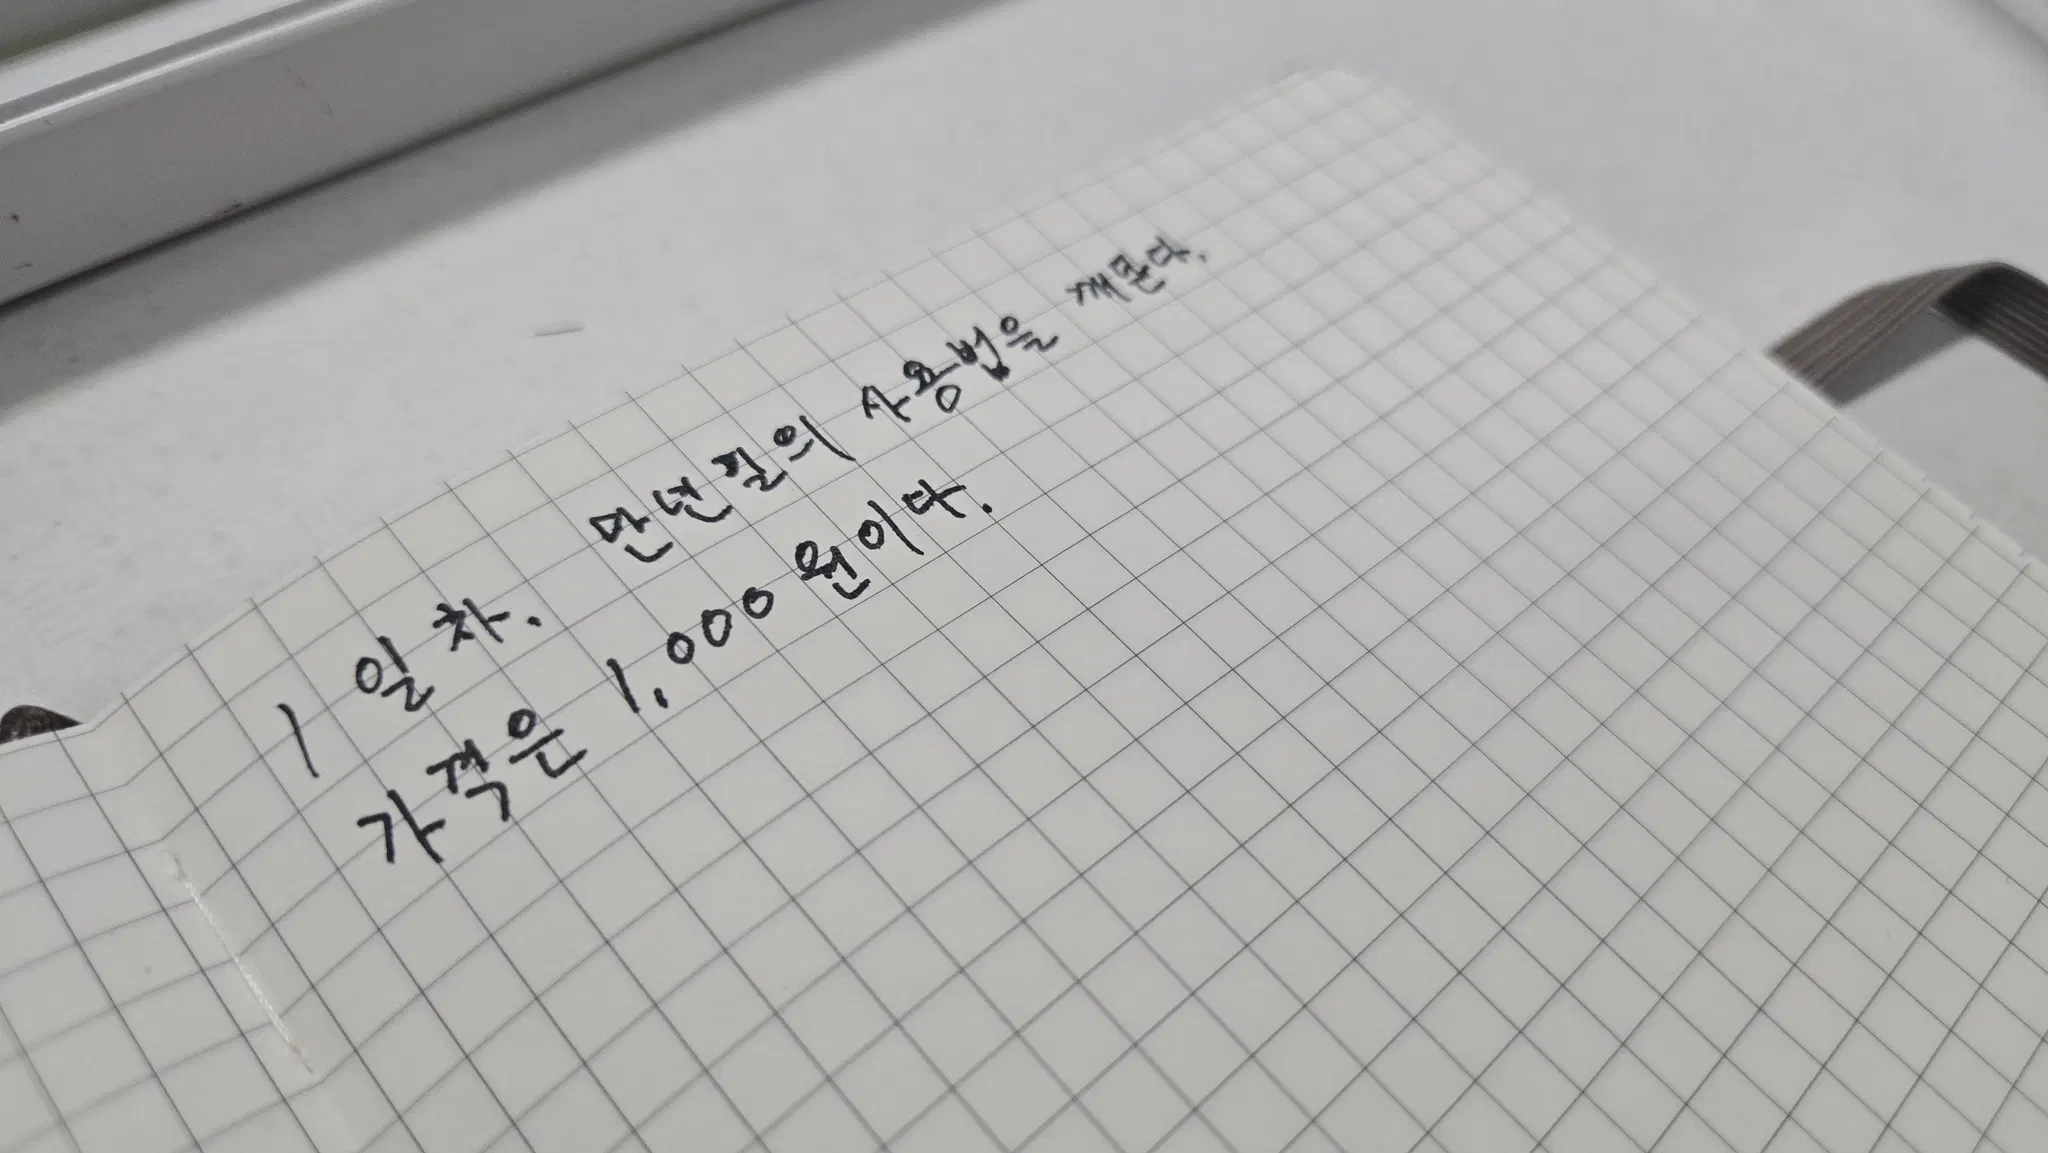 1 일차. 만년필의 사용법을 깨닫다.
가격은 1,000원이다.